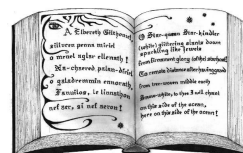 A Elbereth Gilthoniel
silivren penna míriel
o menel aglar elenath!
Na-chaered palan-díriel
o galadhremmin ennorath,
Fanuilos, le linnathon
nef aer, sí nef aearon!
O Star-queen Star-kindler
(white) glittering slants down
sparkling like jewels
from firmament glory (of the) starhost
to remote distance after having gazed
from tree-woven middle earth
Snow-white, to thee I will chant
on this side of the ocean,
here on this side of the ocean!